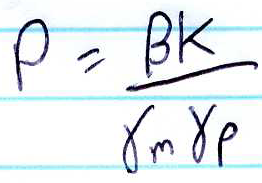 P = βK
γm γp